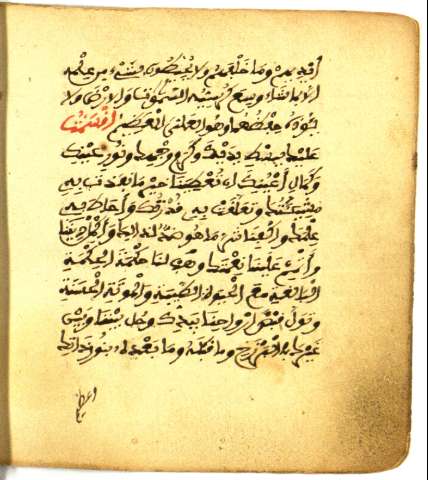 أيديهم وما خلفهم ولا يحيطون بشيء من علمه
إلا بما شاء وسع كرسيه السموات والأرض ولا
يئوده حفظهما وهو العلي العظيم أقسمنا
عليك ببسط يديك وكرم وجهك ونور عينك
وكمال أعينك أن تعطينا خير ما نفذت به
مشيئتك وتعلقت به قدرتك وأحاط به
علمك واكفنا شر ما هو ضد لذلك وأكمل ديننا
وأتمم علينا نعمتك وهب لنا حكمة الحكمة
البالغة مع الحياة الطيبة والموتة الحسنة
وتول قبض أرواحنا بيدك وحل بيننا وبين
غيرك في البرزخ وما قبله وما بعده بنور ذاتك
وعظيم